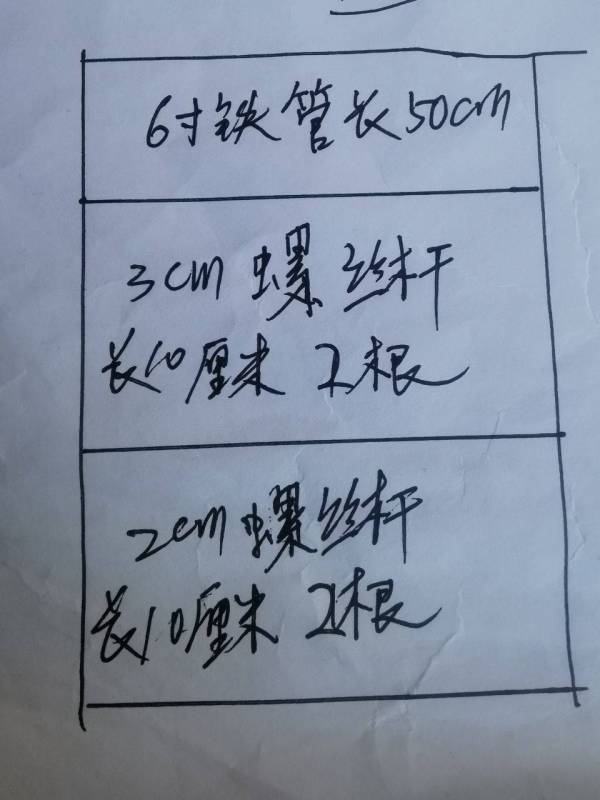 6寸铁管长50cm
3cm螺丝杆
长10厘米 2根
2cm螺丝杆
长10厘米 2根